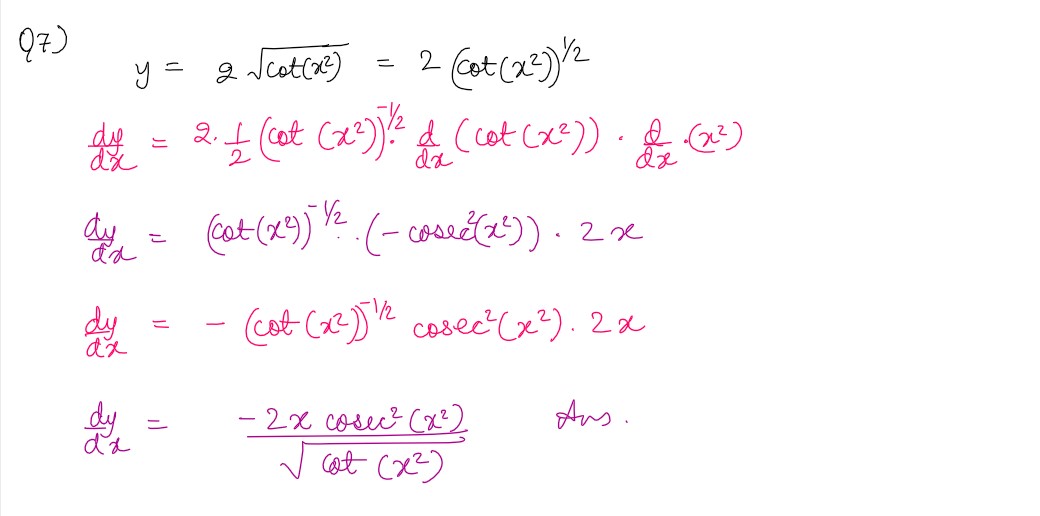 Q7)
y = 2 √cot(x²) = 2 (cot(x²))^1/2
dy/dx = 2 · 1/2 (cot (x²))^-1/2 · d/dx (cot (x²)) · d/dx · (x²)
dy/dx = (cot(x²))^-1/2 · · (- cosec²(x²)) · 2x
dy/dx = - (cot (x²))^-1/2 cosec²(x²) · 2x
dy/dx = -2x cosec² (x²) / √cot (x²) Ans.